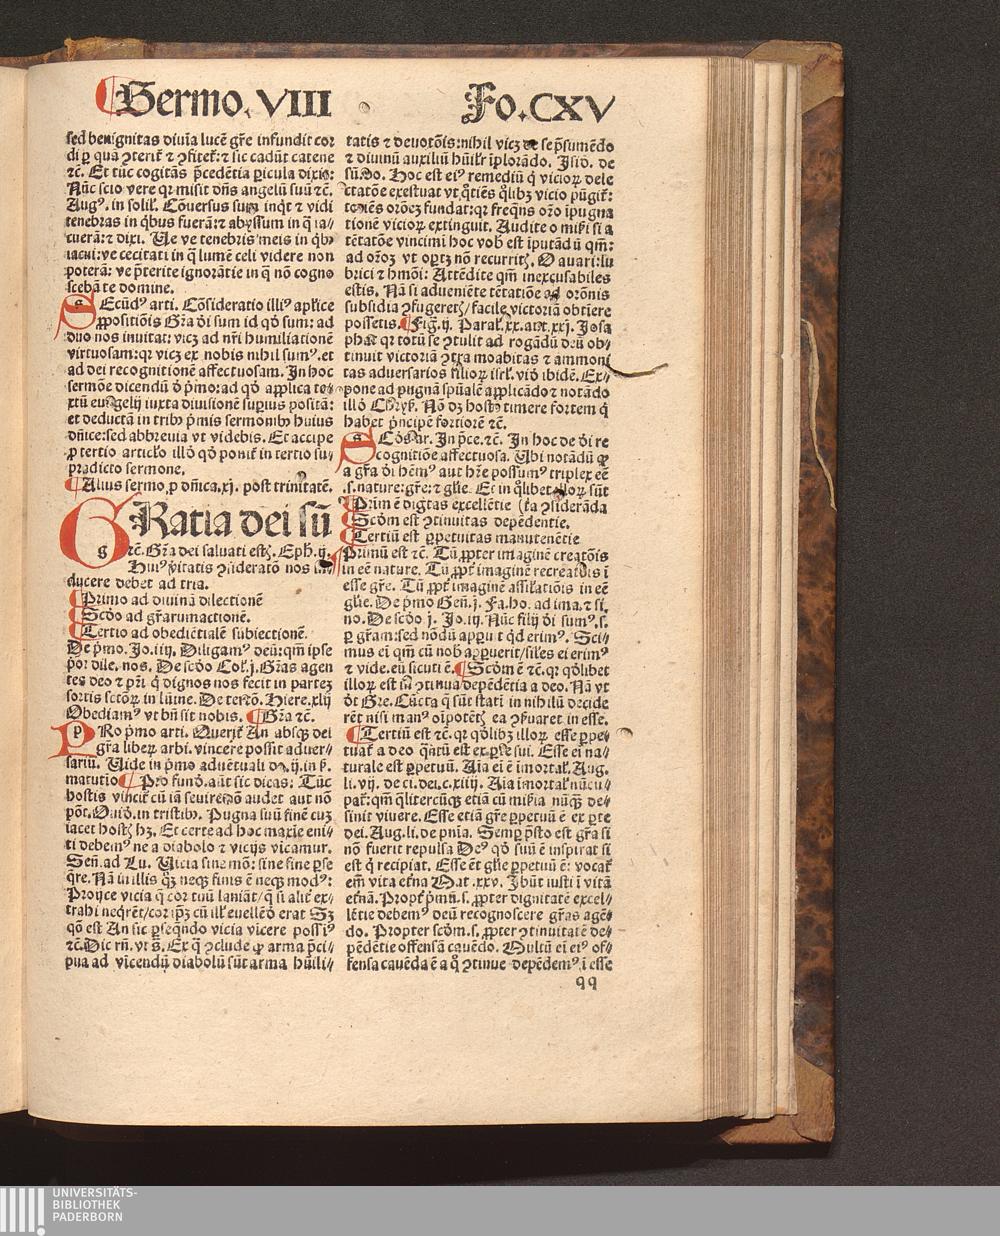 Sermo. VIII
Fo. CXV
sed benignitas diuīa lucē gr̄e infundit cor
di ꝑ quā ꝯterit̉ ⁊ ꝯfitet̉: ⁊ sic cadūt catene
⁊c. Et tūc cogitās p̄cedētia pericula dixit:
Nūc scio vere qꝛ misit dn̄s angelū suū ⁊c.
Augꝰ. in solil. Cōuersus sum inq̇t ⁊ vidi
tenebras in q̇bus fuerā: ⁊ abyssum in q̄ ia⸗
cuerā: ⁊ dixi. Ue ve tenebris meis in q̇bꝰ
iacui: ve cecitati in q̄ lumē celi videre non
poterā: ve p̄terite ignorātie in q̄ nō cogno
scebā te domine.
SEcūdꝰ arti. Cōsideratio illiꝰ aplice
ꝓpositiōis Gr̄a di sum id qd̄ sum: ad
duo nos inuitat: vicꝫ ad nr̄i humiliationē
virtuosam: qꝛ vicꝫ ex nobis nihil sumꝰ. et
ad dei recognitionē affectuosam. In hoc
sermōe dicendū ō p̄mo: ad qd̄ applica te⸗
xtū euāgelij iuxta diuisionē superius positā:
et deductā in tribꝰ p̄mis sermonibꝰ huius
dn̄ice: sed abbreuia vt videbis. Et accipe
ꝓ tertio articl̄o illd̄ qd̄ ponit̉ in tertio su⸗
pradicto sermone.
Alius sermo ꝓ dn̄ica. xj. post trinitatē.
GRatia dei sū
⁊c. Gr̄a dei saluati estꝭ. Eph̄. ij.
Huiꝰ v̄itatis ꝯsideratō nos in⸗
ducere debet ad tria.
Primo ad diuinā dilectionē
Scd̄o ad gr̄arumactionē.
Tertio ad obediētialē subiectionē.
De p̄mo. Jo. iiij. Diligamꝰ deū: qm̄ ipse
p̄or dile. nos. De scd̄o Col̄. j. Gr̄as agen
tes deo ⁊ pr̄i q̄ dignos nos fecit in partez
sortis sctōꝝ in lūine. De tertō. Hiere. xlij
Obediamꝰ vt bn̄ sit nobis. Gr̄a ⁊c.
PRo p̄mo arti. Querit̉ An absqꝫ dei
gr̄a liberꝫ arbi. vincere possit aduer⸗
sariū. Uide in p̄mo aduētuali dn̄. ij. in p̄.
matutio Pro fund̄. aūt sic dicas: Tūc
hostis vincit̉ cū iā seuire nō audet aut nō
pōt. Ouid̄. in tristibꝰ. Pugna suū finē cuꝫ
iacet hostꝭ hꝫ. Et certe ad hoc maxīe eni⸗
ti debemꝰ ne a diabolo ⁊ vicijs vīcamur.
Sen̄. ad Lu. Uicia sine mō: sine fine perse
q̄re. Nā in illis qꝫ neqꝫ finis ē neqꝫ modꝰ:
Proijce vicia q̄ cor tuū laniāt/ q̄ si alit̉ ex⸗
trahi neq̇rēt/ cor ip̄ꝫ cū ill̉ euellēd̄ erat Sꝫ
qō est An sic ꝑseq̄ndo vicia vīcere possiꝰ
⁊c. Dic rn̄. vt s̄. Ex q̄ ꝯclude ꝙ arma p̄ci⸗
pua ad vīcendū diabolū sūt arma hūili⸗
tatis ⁊ deuotōis: nihil vicꝫ de se p̄sumēdo
⁊ diuinū auxiliū hūilr̄ īplorādo. Isid̄. de
sū. bo. Hoc est eiꝰ remediū q̄ vicioꝝ dele
ctatōe exestuat vt q̇tiēs q̇libꝫ vicio pūgit̉:
totiēs orōeꝫ fundat: qꝛ freq̄ns or̄o īpugna
tionē vicioꝝ extinguit. Audite o miß̄i si a
tētatōe vincimī hoc vob̄ est īputādū qm̄:
ad orōꝫ vt oꝑtꝫ nō recurritꝭ. O auari: lu
brici ⁊ hmōi: Attēdite qm̄ inexcusabiles
estis. Nā si adueniēte tētatiōe ad orōnis
subsidia ꝯfugeretꝭ/ facile victoriā obtiere
possetis. Fig̉. ij. Paral̄. xx. aūt. xxj. Josa
phat qꝛ totū se ꝯtulit ad rogādū deū ob⸗
tinuit victoriā ꝯtra moabitas ⁊ ammoni
tas aduersarios filioꝝ isrl̄. vid̄ ibidē. Ex⸗
pone ad pugnā spūalē applicādo ⁊ notādo
illd̄ Chryß. Nō dꝫ hostꝫ timere fortem q̄
habet p̄ncipē fortiorē ⁊c.
Scōs ar. In p̄ce. ⁊c. In hoc de di re
cognitiōe affectuosa. Ubi notādū ꝙ
a gr̄a di hēmꝰ aut hr̄e possumꝰ triplex eē
.s. nature: gr̄e: ⁊ gl̄ie. Et in q̇libet illoꝝ sūt
Prim ē digtas excellētie (tr̄a ꝯsiderāda
Scd̄m est ꝯtinuitas depēdentie.
Tertiū est ꝑpetuitas manutenētie
Primū est ⁊c. Tū ꝓpter imaginē creatōis
in eē nature. Tū ꝓpt̉ imaginē recreatōis ī
esse gr̄e. Tū ꝓpt̉ imaginē assilatiōis in eē
gl̄ie. De p̄mo Gen̄. j. Fa. ho. ad ima. ⁊ si.
no. De scd̄o j. Jo. iij. Nūc filij di sumꝰ. s.
ꝑ gr̄am: sed nōdū apparuit qd̄ erimꝰ. Sci⸗
mus ei qm̄ cū nob̄ apparuerit/ siles ei erimꝰ
⁊ vide. eū sicuti ē. Scd̄m ē ⁊c. qꝛ qd̄libet
illoꝝ est in ꝯtinua depēdētia a deo. Nā vt
ōt Gre. Cūcta q̄ sūt stati in nihilū decide
rēt nisi manꝰ oīpotētꝭ ea ꝯseruaret in esse.
Tertiū est ⁊c. qꝛ qd̄libꝫ illoꝝ esse ꝑpe⸗
tuat̉ a deo q̄ntū est ex parte sui. Esse ei na⸗
turale est ꝑpetuū. Aīa ei ē imortal̉. Aug.
li. vij. de ci. dei. c. xiiij. Aīa imortal̉ nūcu⸗
pat̉: qm̄ q̄litercūqꝫ etiā cū miß̄ia nūqꝫ de⸗
sinit viuere. Esse etiā gr̄e ꝑpetuū ē ex ꝑte
dei. Aug. li. de pn̄ia. Semꝑ p̄sto est gr̄a si
nō fuerit repulsa Deꝰ qd̄ suū ē inspirat si
est q̄ recipiat. Esse ēt gl̄ie ꝑpetuū ē: vocat̉
em̄ vita etn̄a Mat. xxv. Ibūt iusti ī vitā
etn̄ā. Propt̉ p̄mū. s. ꝓpter dignitatē excel⸗
lētie debemꝰ deū recognoscere gr̄as agē⸗
do. Propter scd̄m. s. ꝓpter ꝯtinuitatē de⸗
pēdētie offensā cauēdo. Multū ei eiꝰ of⸗
fensa cauēda ē a q̄ ꝯtinue depēdemꝰ ī esse
qq
UNIVERSITÄTS-
BIBLIOTHEK
PADERBORN